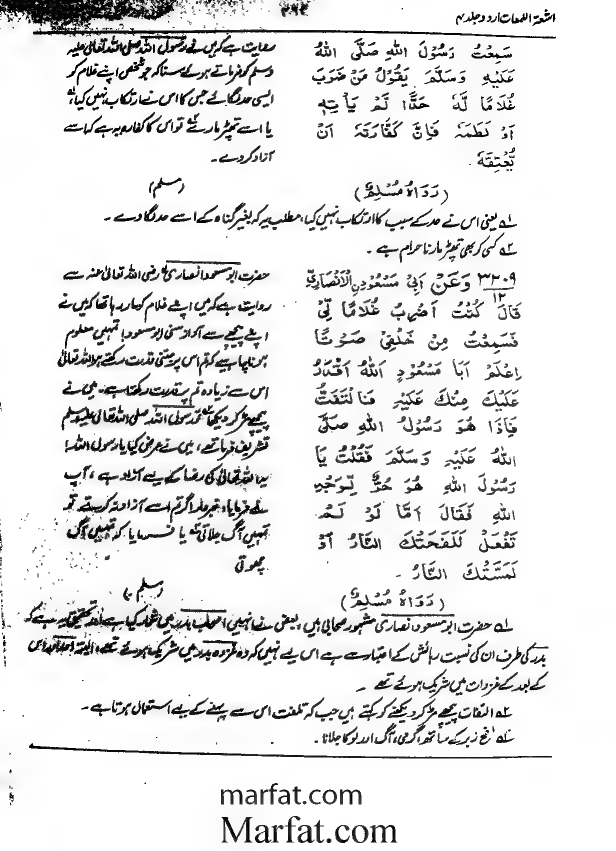 اشعۃ اللمعات اردو جلد ۴
سَمِعْتُ رَسُوْلَ اللهِ صَلَّى اللهُ
عَلَيْهِ وَسَلَّمَ يَقُوْلُ مَنْ ضَرَبَ
غُلَامًا لَّهٗ حَدًّا لَّمْ يَاْتِهٖ
اَوْ لَطَمَهٗ فَاِنَّ كَفَّارَتَهٗ اَنْ
يُّعْتِقَهٗ
(رَوَاهُ مُسْلِمٌ)
روایت ہے کہ میں نے رسول اللہ صلی اللہ تعالیٰ علیہ
وسلم کو فرماتے ہوئے سنا کہ جو شخص اپنے غلام کو
ایسی حد لگائے جس کا اس نے ارتکاب نہیں کیا،
یا اسے تھپڑ مارے تو اس کا کفارہ یہ ہے کہ اسے
آزاد کر دے۔
(مسلم)
۱ یعنی اس نے حد کے سبب کا ارتکاب نہیں کیا، مطلب یہ کہ بغیر گناہ کے اسے حد لگا دے۔
۲ کسی کو بھی تھپڑ مارنا حرام ہے۔
۳۲۰۹ وَعَنْ اَبِيْ مَسْعُوْدِنِ الْاَنْصَارِيِّ
۱۲
قَالَ كُنْتُ اَضْرِبُ غُلَامًا لِّيْ
فَسَمِعْتُ مِنْ خَلْفِيْ صَوْتًا
اِعْلَمْ اَبَا مَسْعُوْدٍ اَللهُ اَقْدَرُ
عَلَيْكَ مِنْكَ عَلَيْهِ فَالْتَفَتُّ
فَاِذَا هُوَ رَسُوْلُ اللهِ صَلَّى
اللهُ عَلَيْهِ وَسَلَّمَ فَقُلْتُ يَا
رَسُوْلَ اللهِ هُوَ حُرٌّ لِّوَجْهِ
اللهِ فَقَالَ اَمَّا لَوْ لَمْ
تَفْعَلْ لَلَفَحَتْكَ النَّارُ اَوْ
لَمَسَّتْكَ النَّارُ۔
(رَوَاهُ مُسْلِمٌ)
حضرت ابو مسعود انصاری رضی اللہ تعالیٰ عنہ سے
روایت ہے کہ میں اپنے غلام کو مار رہا تھا کہ میں نے
اپنے پیچھے سے آواز سنی ابو مسعود! تمہیں معلوم
ہونا چاہیے کہ تم اس پر جتنی قدرت رکھتے ہو اللہ تعالیٰ
اس سے زیادہ تم پر قدرت رکھتا ہے۔ میں نے
پیچھے مڑ کر دیکھا تو رسول اللہ صلی اللہ تعالیٰ علیہ وسلم
تشریف فرما تھے، میں نے عرض کیا یا رسول اللہ!
یہ اللہ تعالیٰ کی رضا کے لیے آزاد ہے، آپ
نے فرمایا، خبردار! اگر تم اسے آزاد نہ کرتے تو
تمہیں آگ جلاتی یا فرمایا کہ تمہیں آگ
چھوتی
(مسلم)
۱ حضرت ابو مسعود انصاری مشہور صحابی ہیں، بعض نے انہیں اصحاب بدر میں شمار کیا ہے اور تحقیق یہ ہے کہ
بدر کی طرف ان کی نسبت رہائش کے اعتبار سے ہے اس لیے نہیں کہ وہ غزوہ بدر میں شریک ہوئے تھے، البتہ اُحد اور اس
کے بعد کے غزوات میں شریک ہوئے تھے۔
۲ التفات پیچھے مڑ کر دیکھنے کو کہتے ہیں جب کہ تلفت اس سے پہلے کے لیے استعمال ہوتا ہے۔
۳ لفح زبر کے ساتھ، گرمی، آگ اور لو کا جلانا۔
marfat.com
Marfat.com